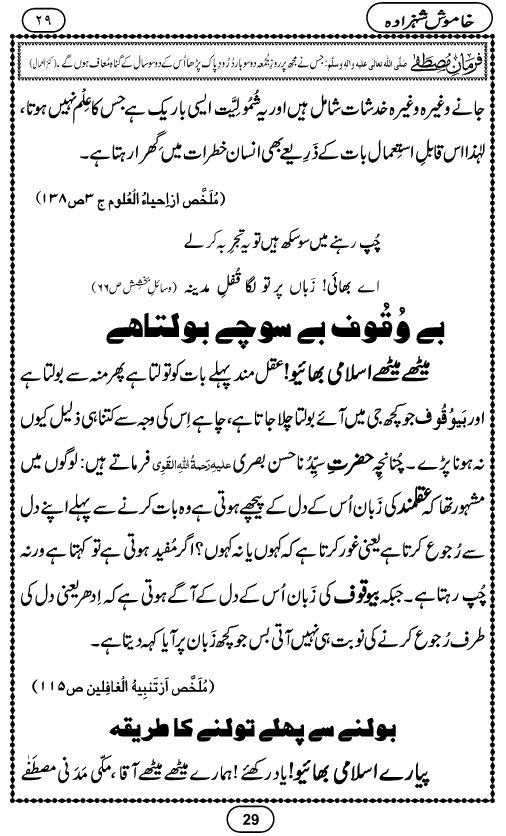 خاموش شہزادہ
۲۹
فرمانِ مُصطَفٰے صَلَّی اللہ تعالٰی علیہ واٰلہٖ وسلَّم: جس نے مجھ پر روزِ جُمُعہ دو سو بار دُرُودِ پاک پڑھا اُس کے دو سو سال کے گناہ مُعاف ہوں گے۔ (کنزالعمال)
جانے وغیرہ وغیرہ خدشات شامل ہیں اور یہ شُمُولِیَّت ایسی باریک ہے جس کا عِلْم نہیں ہوتا،
لہٰذا اس قابلِ اِستِعمال بات کے ذَرِیعے بھی انسان خطرات میں گِھرا رہتا ہے۔
(مُلَخَّص از اِحیاءُ الْعُلوم ج ۳ ص ۱۳۸)
چُپ رہنے میں سو سکھ ہیں تو یہ تجرِبہ کر لے
اے بھائی! زَباں پر تو لگا قُفلِ مدینہ (وسائلِ بخشِش ص۶۶)
بے وُقُوف بے سوچے بولتا ہے
میٹھے میٹھے اسلامی بھائیو! عقل مند پہلے بات کو تولتا ہے پھر منہ سے بولتا ہے
اور بَیوُقُوف جو کچھ جی میں آئے بولتا چلا جاتا ہے، چاہے اِس کی وجہ سے کتنا ہی ذلیل کیوں
نہ ہونا پڑے۔ چُنانچِہ حضرتِ سیِّدُنا حسن بصری علیہ رَحمۃُ اللہِ القَوی فرماتے ہیں: لوگوں میں
مشہور تھا کہ عقلمند کی زَبان اُس کے دل کے پیچھے ہوتی ہے وہ بات کرنے سے پہلے اپنے دل
سے رُجوع کرتا ہے یعنی غور کرتا ہے کہ کہوں یا نہ کہوں؟ اگر مُفید ہوتی ہے تو کہتا ہے ورنہ
چُپ رہتا ہے۔ جبکہ بیوقوف کی زَبان اُس کے دل کے آگے ہوتی ہے کہ اِدھر یعنی دل کی
طرف رُجوع کرنے کی نوبت ہی نہیں آتی بس جو کچھ زَبان پر آیا کہہ دیتا ہے۔
(مُلَخَّص اَز تَنبِیہُ الْغافِلین ص ۱۱۵)
بولنے سے پہلے تولنے کا طریقہ
پیارے اسلامی بھائیو! یاد رکھئے! ہمارے میٹھے میٹھے آقا، مکّی مَدَنی مصطَفٰے
29